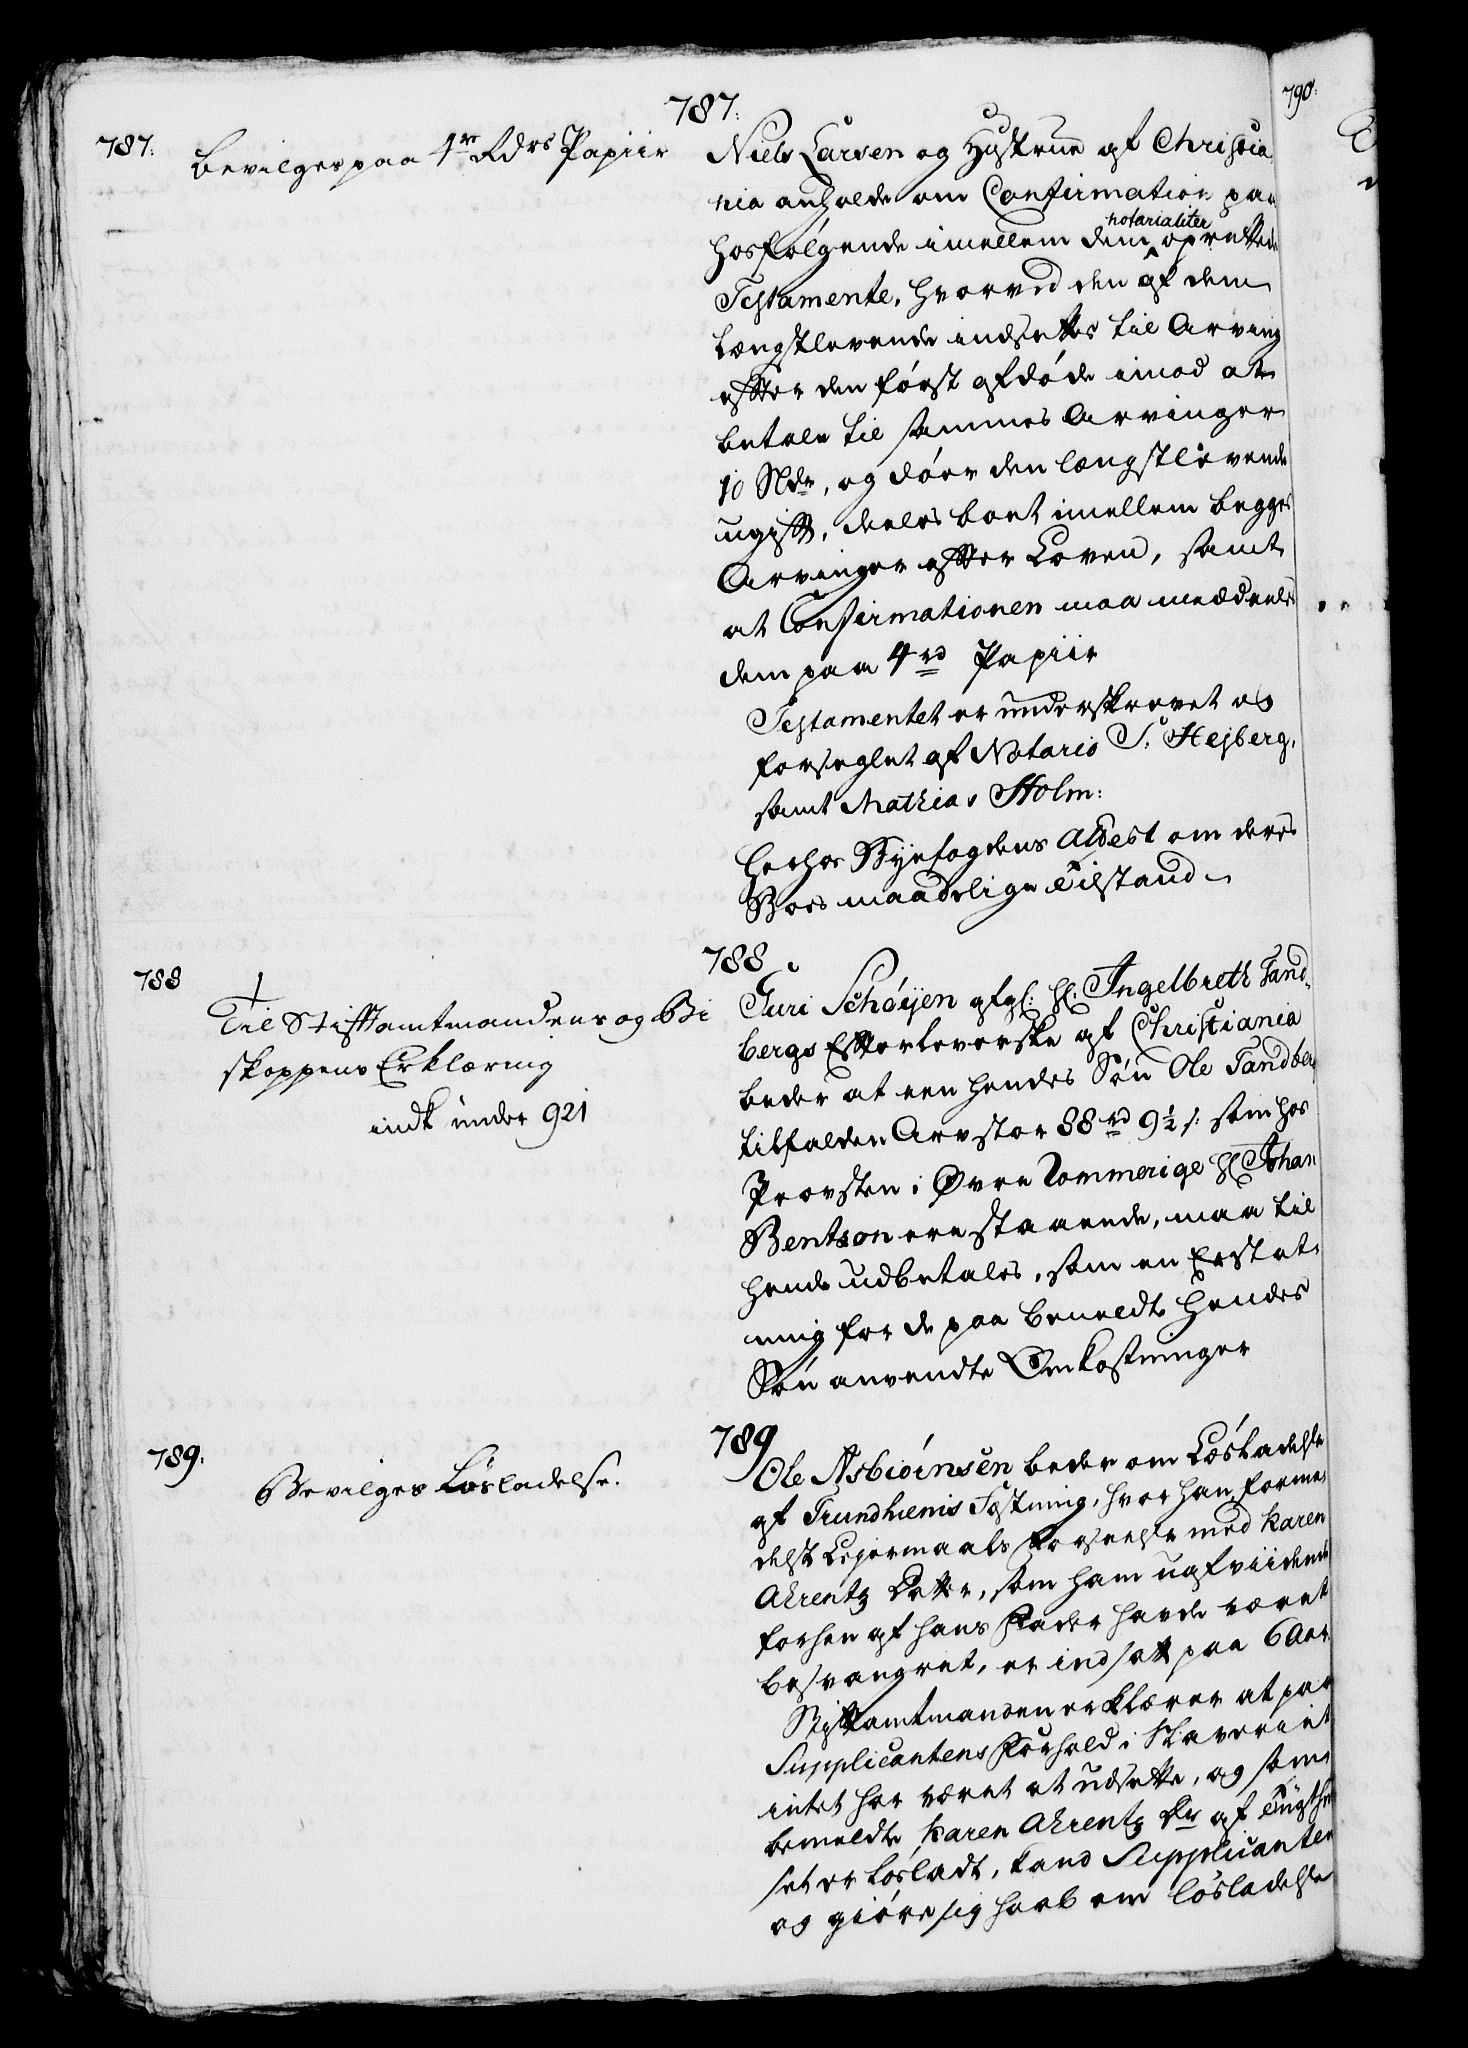 787.
Bevilges paa 4re Rdrs Papiir
787.
Niels Larsen og Hustrue af Christia
nia anholde om Confirmation paa
hosfølgende imellem dem notarialiter oprettede
Testamente, hvorved den af dem
længstlevende indsættes til Arving
efter den først afdøde imod at
betale til sammes Arvinger
10 Rdr, og døer den længstlevende
ugift, deeles boet imellem begges
Arvinger efter Loven, samt
at Confirmationen maa meddeeles
dem paa 4 rd Papiir
Testamentet er underskrevet og
forseglet af Notario S. Hejberg,
samt Mathias Holm:
Herhos Byefogdens Attest om deres
Boes maadelige Tilstand
788
Til Stiftamtmandens og Bi
skoppens Erklæring
indk under 921
788
Guri Schøyen afgl: Hl: Ingelbreth Tand-
bergs Efterleverske af Christiania
beder at een hendes Søn Ole Tandberg
tilfalden Arv stor 88 rd 9½ s: som hos
Provsten i Øvre Rommerige Hl Johan
Bentzon ere staaende, maa til
hende udbetales, som en Erstat-
ning for de paa bemeldte hendes
Søn anvendte Omkostninger
789.
Bevilges Løsladelse.
789
Ole Asbiørnsen beder om Løsladelse
af Trundhiems Fæstning, hvor han forme-
delst Lejermaals Forseelse med Karen
Ahrentz Datter, som ham uafviidende
forhen af hans Fader havde været
besvangret, er indsatt paa 6 Aar.
Stiftamtmanden erklærer at paa
Supplicantens Forhold i Slaveriet
intet har været at udsætte, og som
bemeldte Karen Ahrentz Dr af Tugthu
set er løsladt, kand Supplicanten
og giøre sig haab om løsladelse
790.